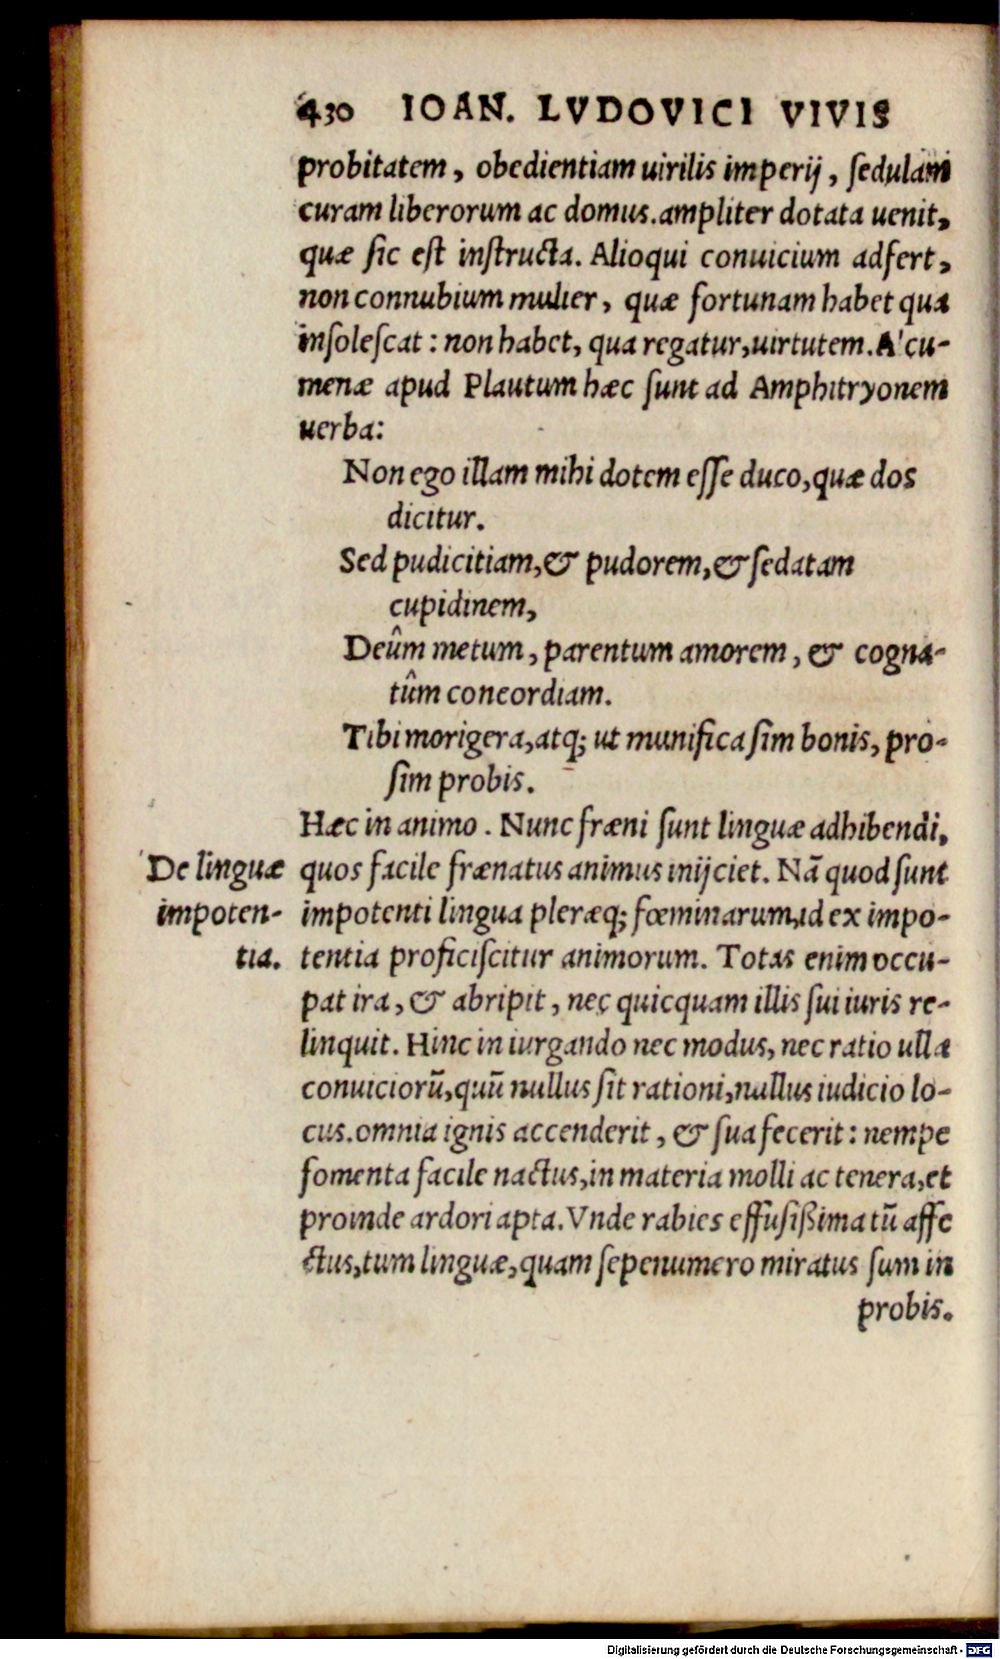 430 IOAN. LVDOVICI VIVIS
probitatem, obedientiam uirilis imperij, sedulam
curam liberorum ac domus. ampliter dotata uenit,
quæ sic est instructa. Alioqui conuicium adfert,
non connubium mulier, quæ fortunam habet qua
insolescat: non habet, qua regatur, uirtutem. A'cu-
menæ apud Plautum hæc sunt ad Amphitryonem
uerba:
Non ego illam mihi dotem esse duco, quæ dos
dicitur.
Sed pudicitiam, & pudorem, & sedatam
cupidinem,
Deûm metum, parentum amorem, & cogna-
tûm concordiam.
Tibi morigera, atq; ut munifica sim bonis, pro-
sim probis.
Hæc in animo. Nunc fræni sunt linguæ adhibendi,
De linguæ quos facile frænatus animus inijciet. Nã quod sunt
impoten- impotenti lingua pleræq; fœminarum, id ex impo-
tia. tentia proficiscitur animorum. Totas enim occu-
pat ira, & abripit, nec quicquam illis sui iuris re-
linquit. Hinc in iurgando nec modus, nec ratio ulla
conuiciorũ, quũ nullus sit rationi, nullus iudicio lo-
cus. omnia ignis accenderit, & sua fecerit: nempe
fomenta facile nactus, in materia molli ac tenera, et
proinde ardori apta. Vnde rabies effusißima tũ affe
ctus, tum linguæ, quam sepenumero miratus sum in
probis.
Digitalisierung gefördert durch die Deutsche Forschungsgemeinschaft - DFG